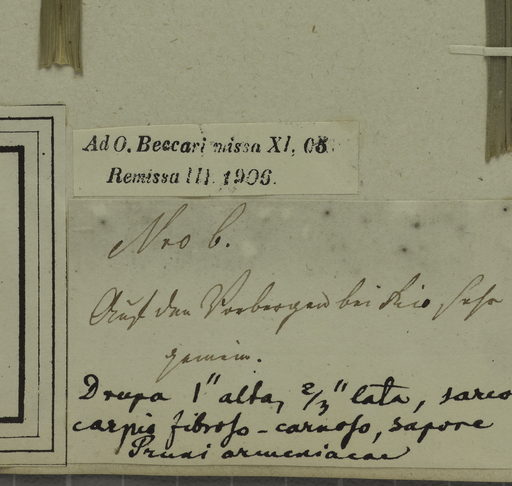 Ad O. Beccari missa XI, 05.
Remissa III. 1906.
Nro 6.
Auf den Vorbergen bei Rio sehr
gemein.
Drupa 1" alta, 2/3" lata, sarco
carpio fibroso-carnoso, sapore
Pruni armeniacae